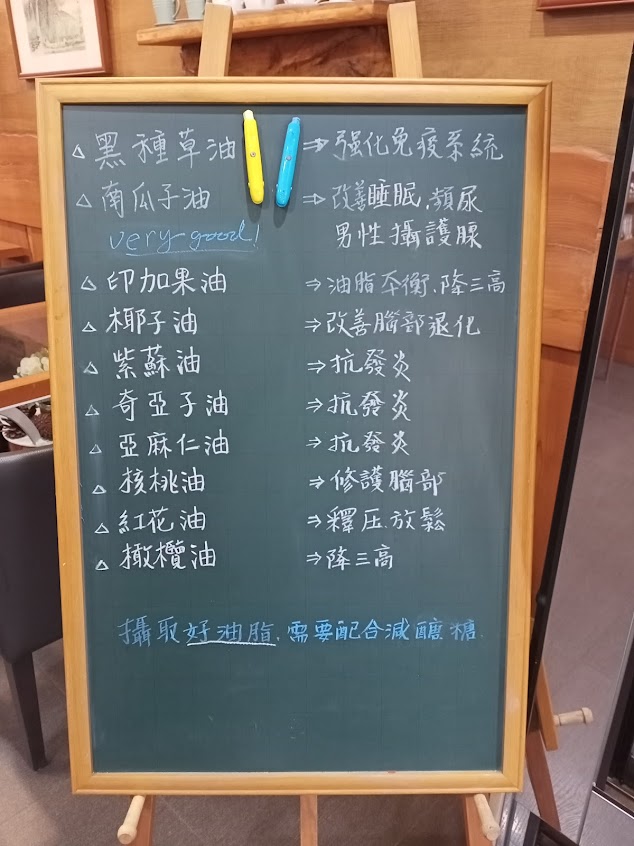 △ 黑種草油 ⇒ 强化免疫系統
△ 南瓜子油 ⇒ 改善睡眠.頻尿
very good! 男性攝護腺
△ 印加果油 ⇒ 油脂平衡.降三高
△ 椰子油 ⇒ 改善腦部退化
△ 紫蘇油 ⇒ 抗發炎
△ 奇亞子油 ⇒ 抗發炎
△ 亞麻仁油 ⇒ 抗發炎
△ 核桃油 ⇒ 修護腦部
△ 紅花油 ⇒ 釋压.放鬆
△ 橄欖油 ⇒ 降三高
攝取好油脂.需要配合減醣糖.